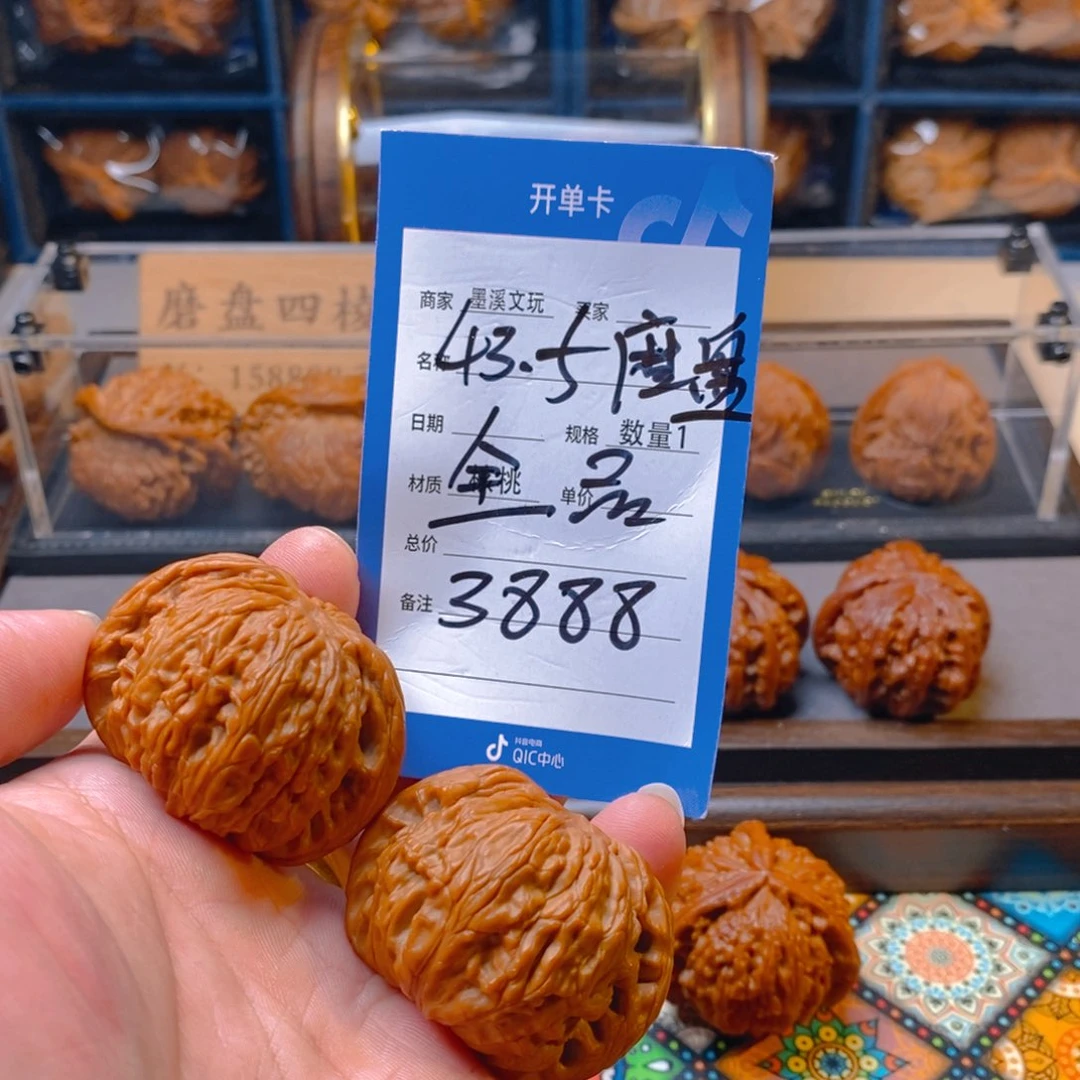 开单卡
商家 墨溪文玩 买家
名称 43.5磨盘
日期 规格 数量1
材质 核桃 单价
全品
总价
备注 3888
抖音电商
QIC中心
磨盘四棱